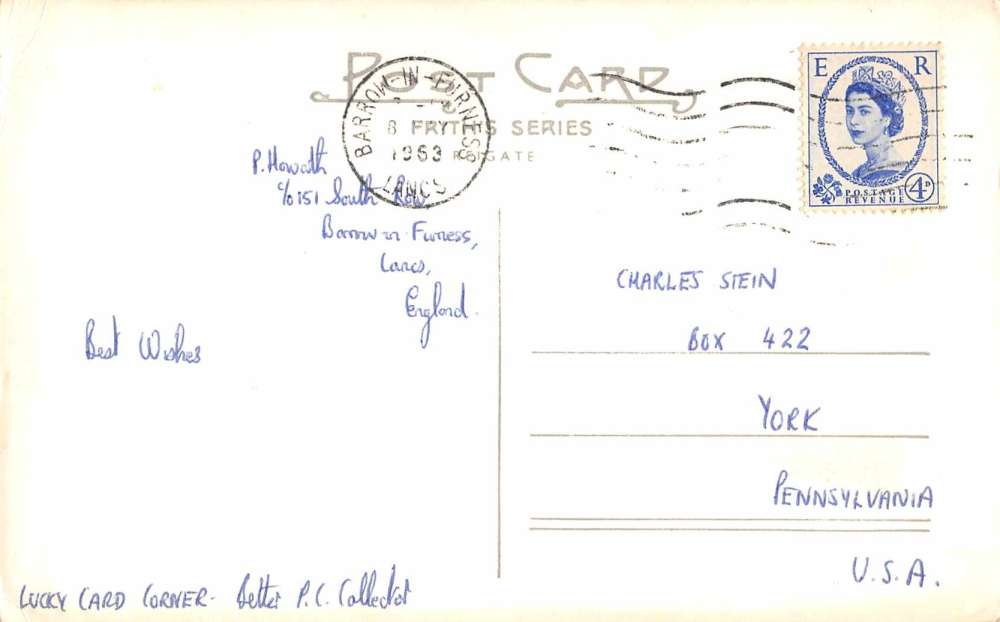 POST CARD
FRYTH'S SERIES
REIGATE
BARROW-IN-FURNESS
8
1963
LANCS
E R
POSTAGE
REVENUE
4D
P. Howarth
c/o 151 South Row,
Barrow in Furness,
Lancs,
England.
Best Wishes
CHARLES STEIN
BOX 422
YORK
PENNSYLVANIA
U.S.A.
LUCKY CARD CORNER - P.C. Collector